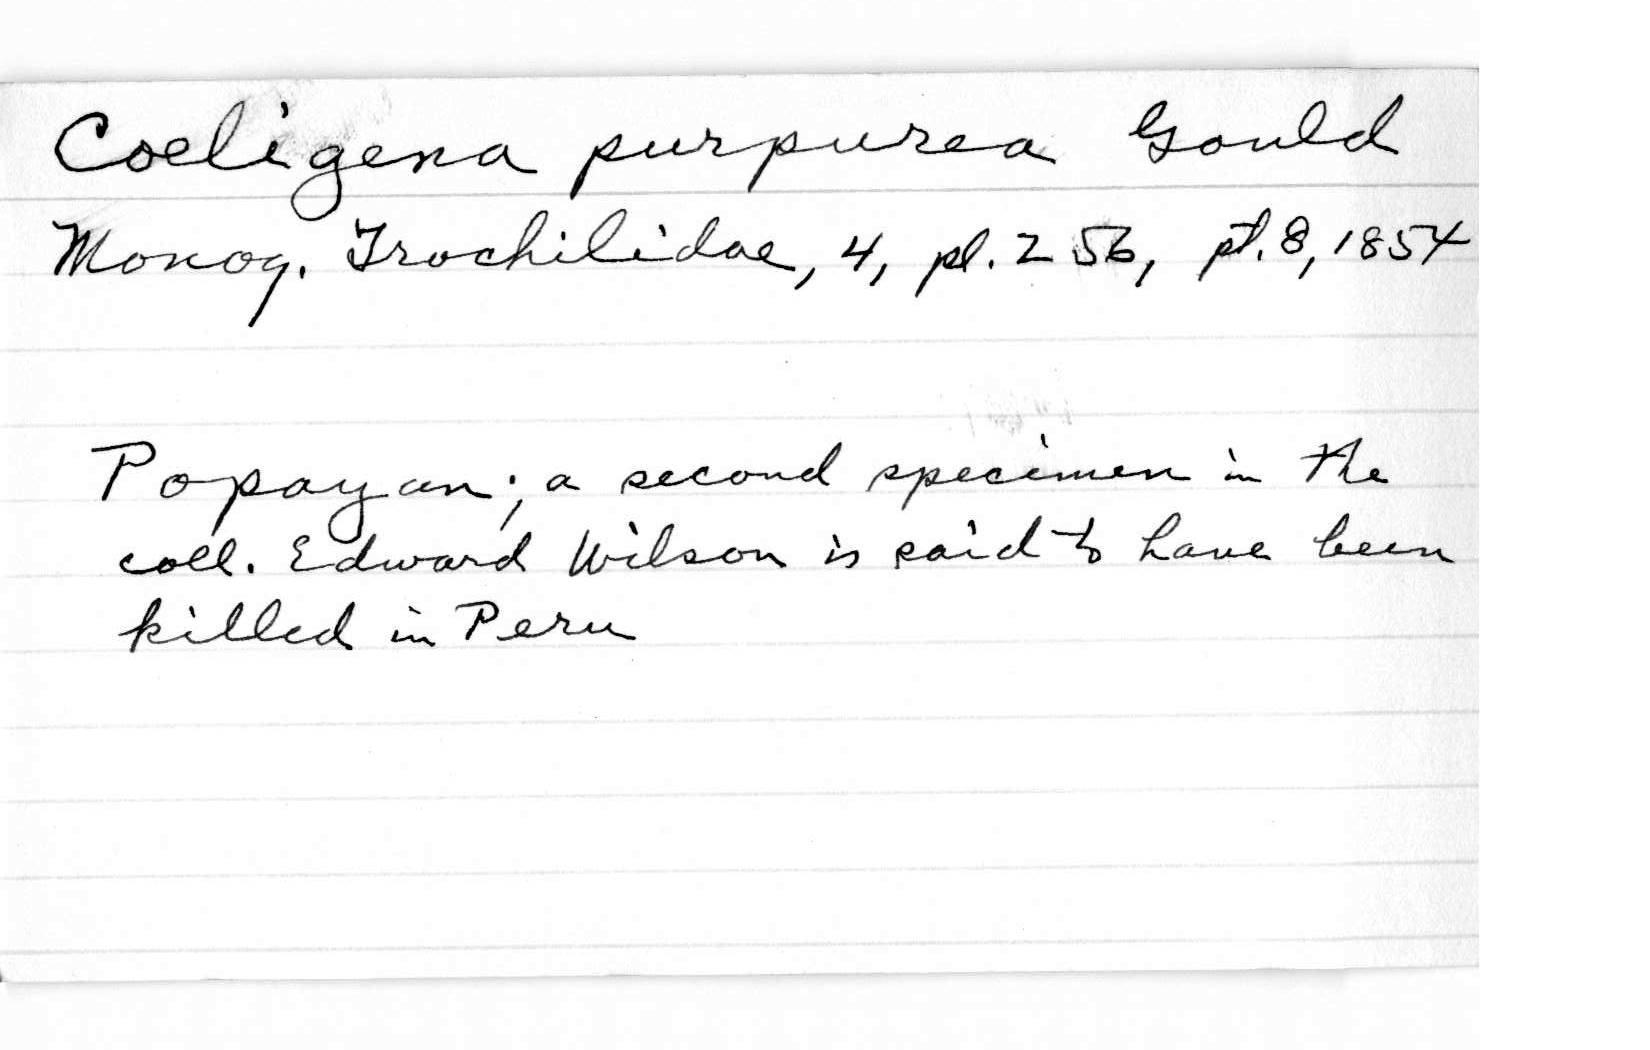 Coeligena purpurea Gould
Monog. Trochilidae, 4, pl. 256, pt. 8, 1854
Popayan; a second specimen in the
coll. Edward Wilson is said to have been
killed in Peru